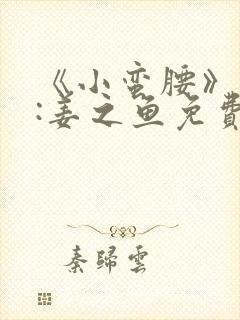 《小蛮腰》
:姜之鱼免費
秦歸雲